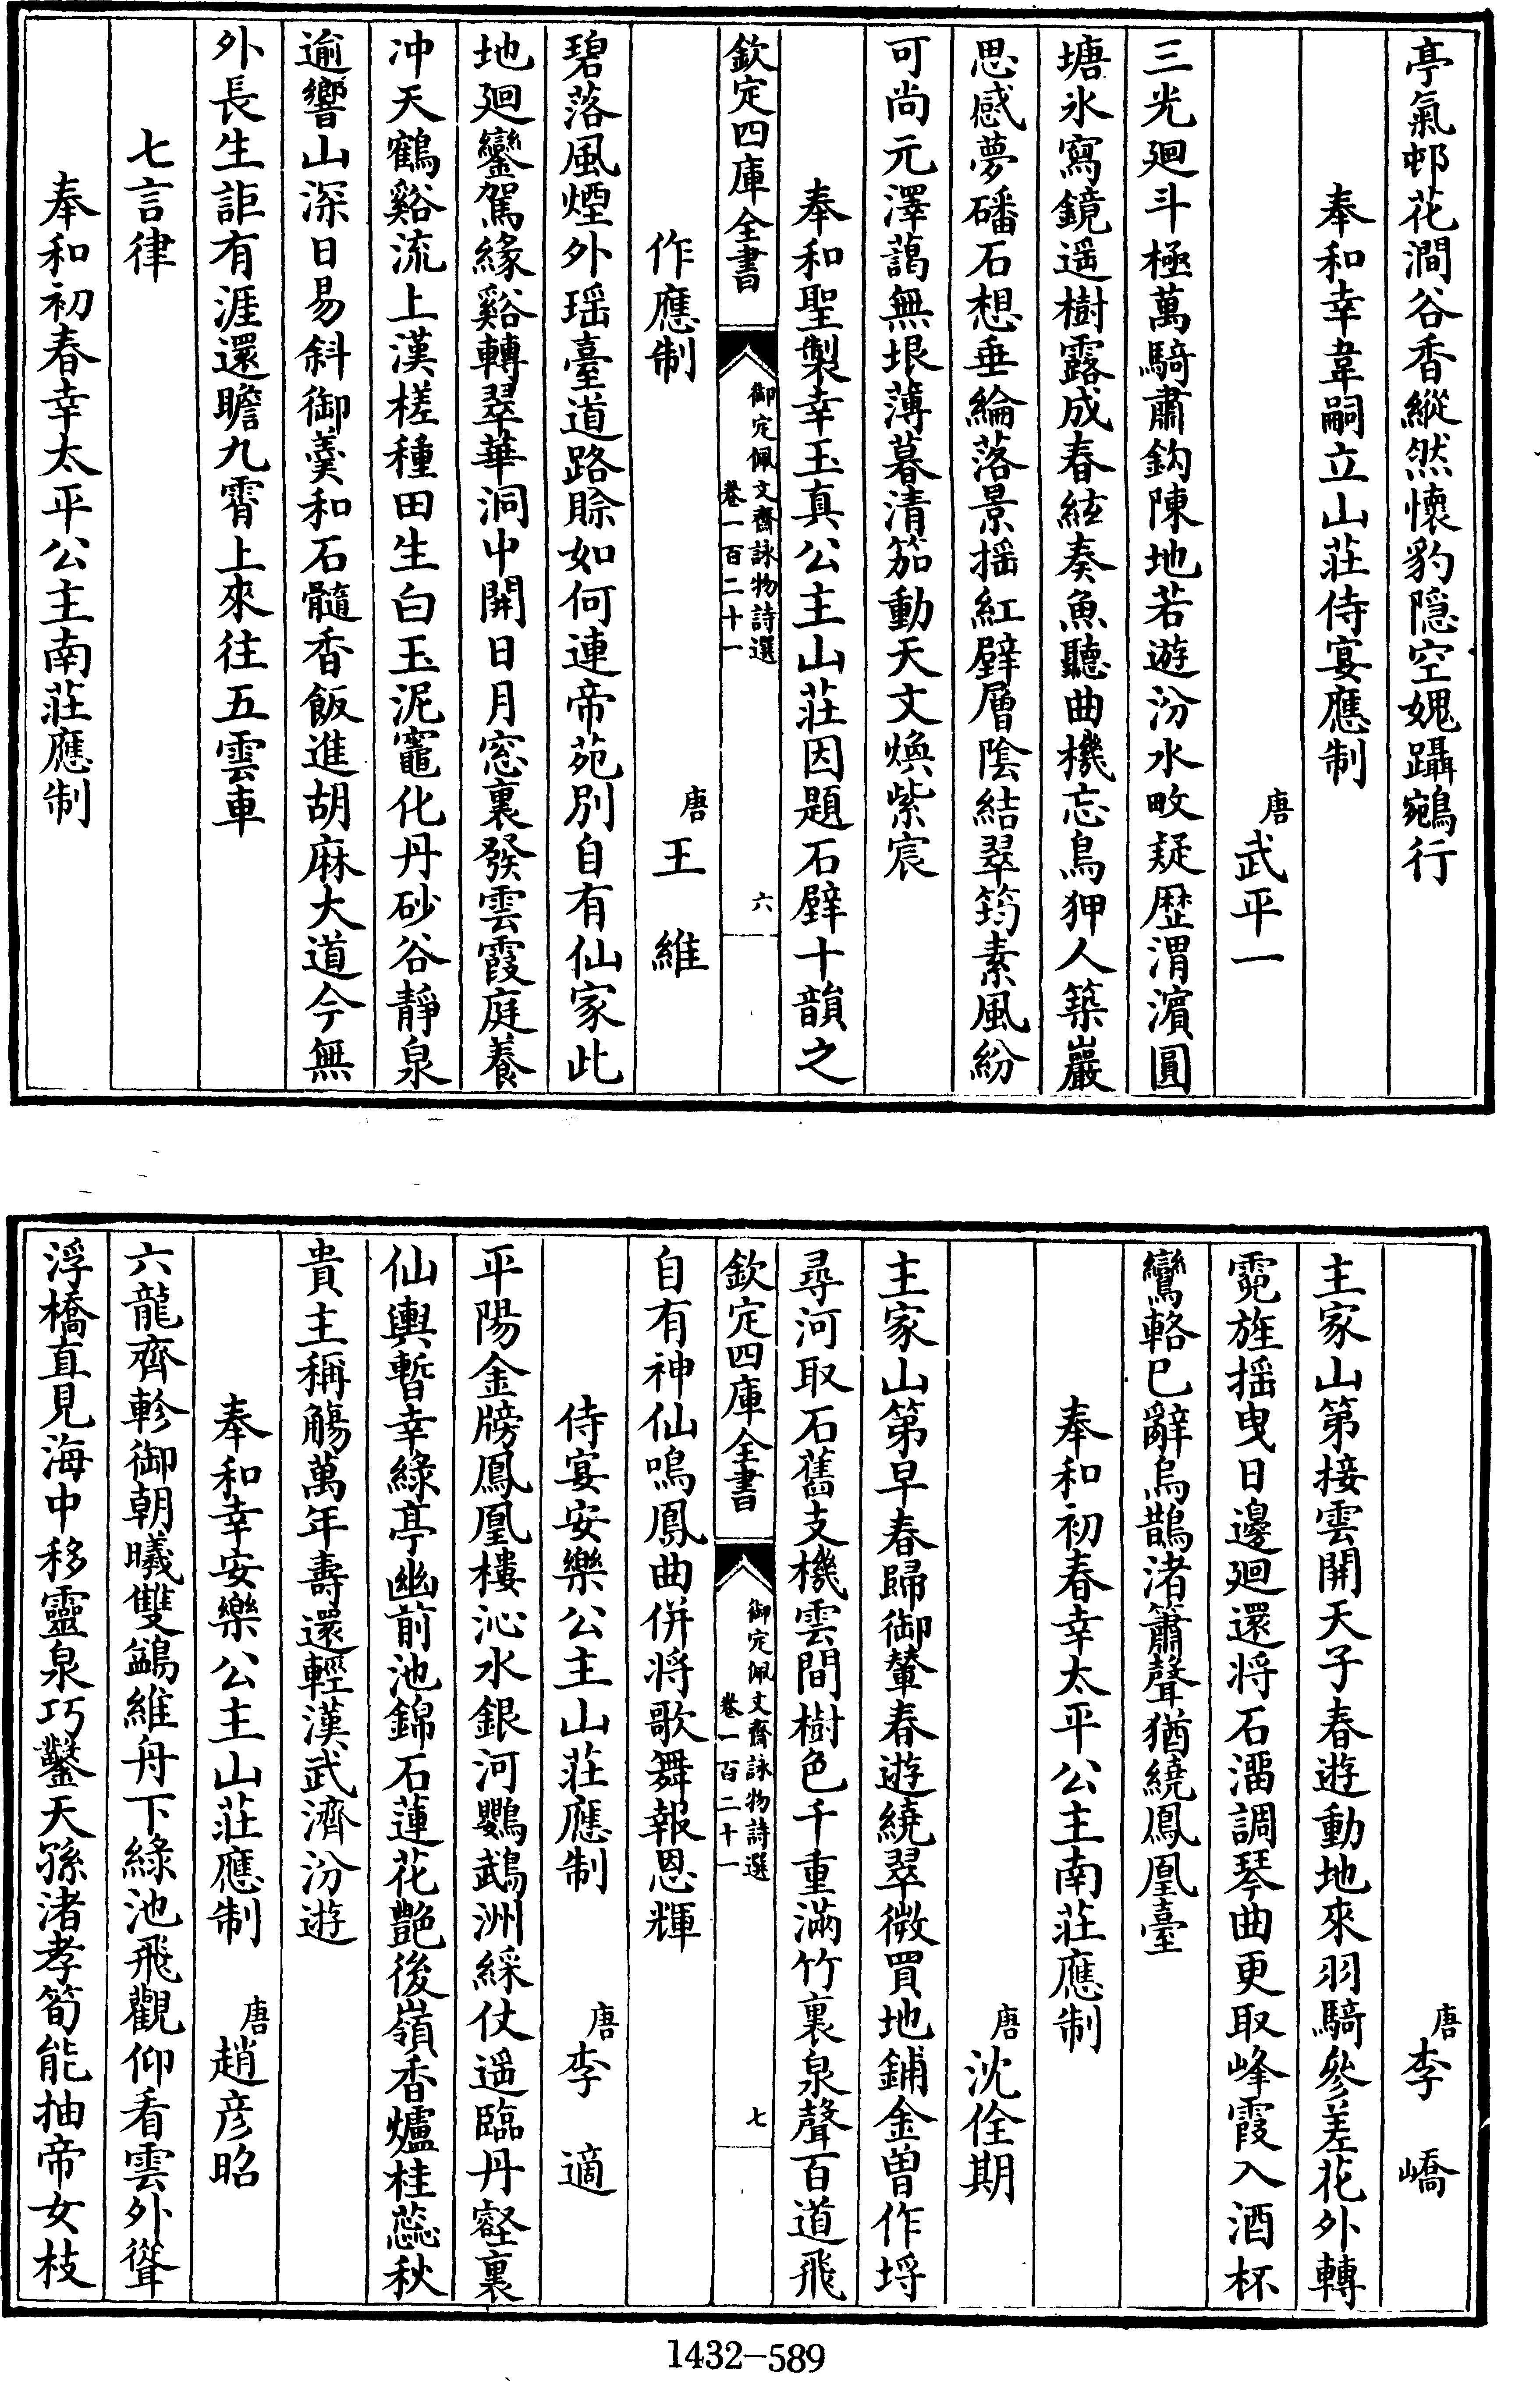 亭氣邨花澗谷香縱然懷豹隠空媿躡鵷行
奉和幸韋嗣立山莊侍宴應制
唐武平一
三光廻斗極萬騎肅鈎陳地若遊汾水畋疑歴渭濵圓
塘氷寫鏡遥樹露成春絃奏魚聽曲機忘鳥狎人築巖
思感夢磻石想垂綸落景揺紅壁層隂結翠筠素風紛
可尚元澤藹無垠薄暮清笳動天文煥紫宸
奉和聖製幸玉真公主山莊因題石壁十韻之
欽定四庫全書
御定佩文齋詠物詩選
卷一百二十一
六
作應制
唐王維
碧落風煙外瑶臺道路賒如何連帝苑別自有仙家此
地廻鑾駕緣谿轉翠華洞中開日月窓裏發雲霞庭養
冲天鶴谿流上漢槎種田生白玉泥竈化丹砂谷靜泉
逾響山深日易斜御羮和石髓香飯進胡麻大道今無
外長生詎有涯還瞻九霄上來往五雲車
七言律
奉和初春幸太平公主南莊應制
唐李嶠
主家山第接雲開天子春遊動地來羽騎參差花外轉
霓旌揺曳日邊廻還將石溜調琴曲更取峰霞入酒杯
鸞輅已辭烏鵲渚簫聲猶繞鳳凰臺
奉和初春幸太平公主南莊應制
唐沈佺期
主家山第早春歸御輦春遊繞翠微買地鋪金曽作埒
尋河取石舊支機雲間樹色千重滿竹裏泉聲百道飛
欽定四庫全書
御定佩文齋詠物詩選
卷一百二十一
七
自有神仙鳴鳳曲併將歌舞報恩輝
侍宴安樂公主山莊應制
唐李適
平陽金牓鳳凰樓沁水銀河鸚鵡洲綵仗遥臨丹壑裏
仙輿暫幸綠亭幽前池錦石蓮花艶後嶺香爐桂蕊秋
貴主稱觴萬年壽還輕漢武濟汾遊
奉和幸安樂公主山莊應制
唐趙彦昭
六龍齊軫御朝曦雙鷁維舟下綠池飛觀仰看雲外聳
浮橋直見海中移靈泉巧鑿天孫渚孝筍能抽帝女枝
1432-589